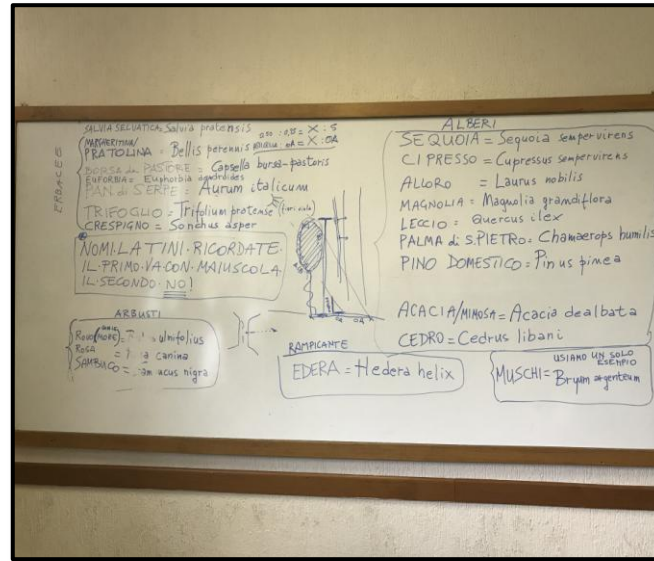 ERBACEE
SALVIA SELVATICA = Salvia pratensis
MARGHERITINA/
PRATOLINA = Bellis perennis
BORSA da PASTORE = Capsella bursa-pastoris
EUFORBIA = Euphorbia
PAN di SERPE = Aurum italicum
TRIFOGLIO = Trifolium pratense
CRESPIGNO = Sonchus asper
NOMI LATINI. RICORDATE.
IL PRIMO VA CON MAIUSCOLA
IL SECONDO NO!
ARBUSTI
ROVO = ulmifolius
ROSA = canina
SAMBUCO = nigra
RAMPICANTE
EDERA = Hedera helix
ALBERI
SEQUOIA = Sequoia sempervirens
CIPRESSO = Cupressus sempervirens
ALLORO = Laurus nobilis
MAGNOLIA = Magnolia grandiflora
LECCIO = Quercus ilex
PALMA di S. PIETRO = Chamaerops humilis
PINO DOMESTICO = Pinus pinea
ACACIA/MIMOSA = Acacia dealbata
CEDRO = Cedrus libani
USIAMO UN SOLO
ESEMPIO
MUSCHI = Bryum argenteum